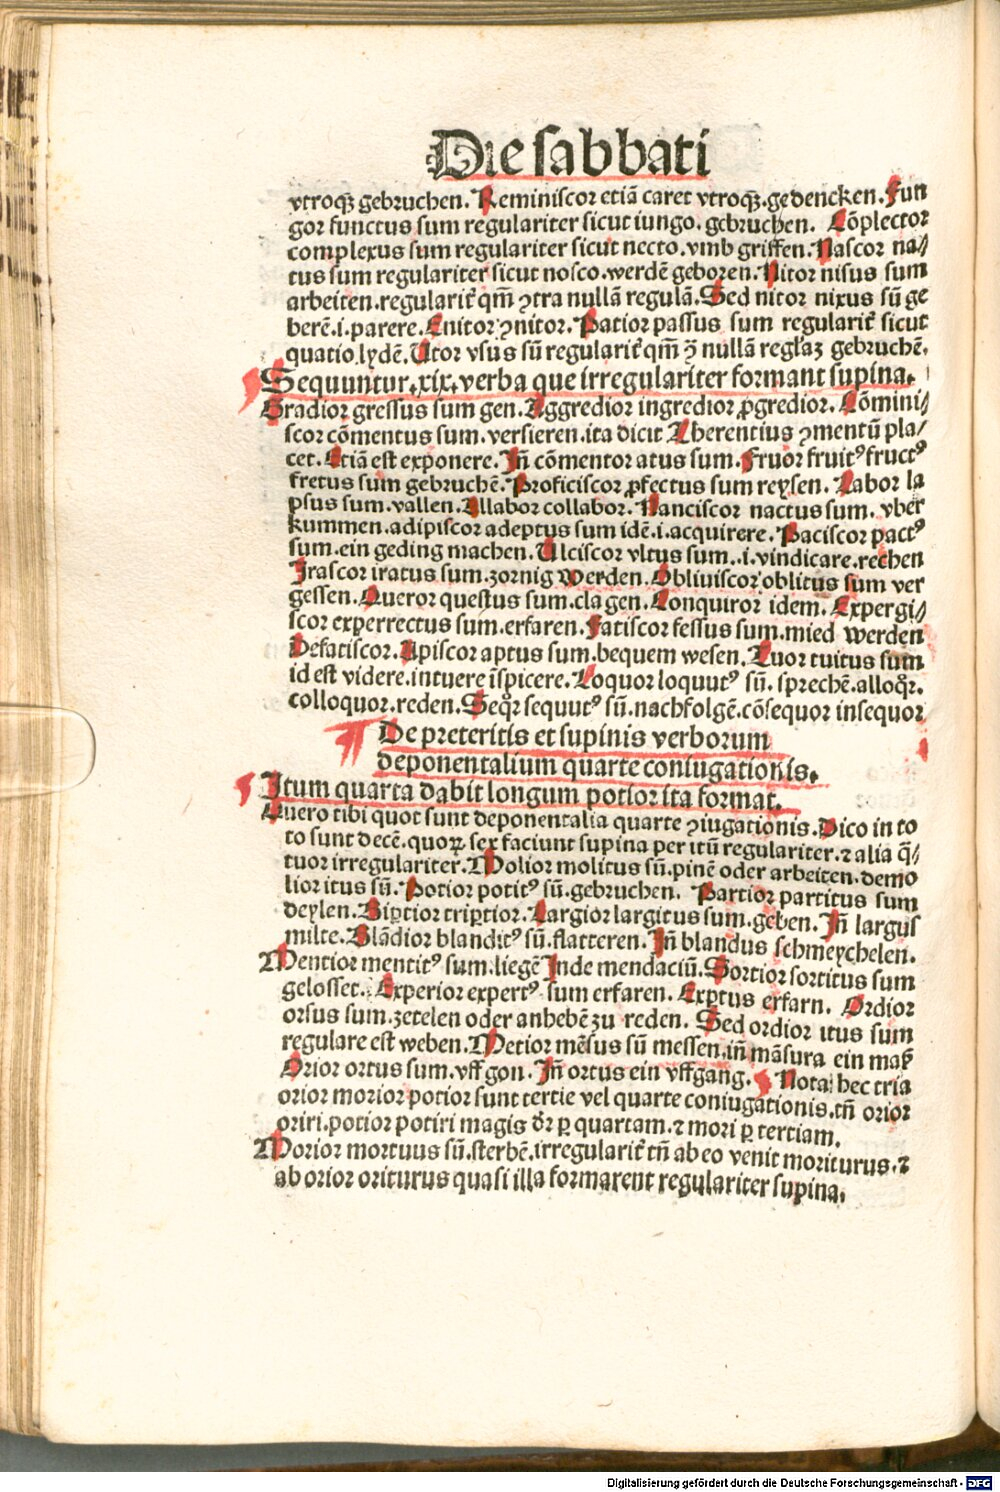 Die sabbati
vtroqꝫ gebruchen. Reminiscor etiā caret vtroqꝫ. gedencken. Fun
gor functus sum regulariter sicut iungo. gebruchen. Cōplector
complexus sum regulariter sicut necto. vmb griffen. Nascor na⸗
tus sum regulariter sicut nosco. werdē geboren. Nitor nisus sum
arbeiten. regularit̉ qm̄ ꝯtra nullā regulā. Sed nitor nixus sū ge
berē. i. parere. Enitor ꝯnitor. Patior passus sum regularit̉ sicut
quatio. lydē. Utor vsus sū regularit̉ qm̄ ꝯ nullā regl̄aꝫ gebruchē.
Sequuntur. xix. verba que irregulariter formant supina.
Gradior gressus sum gen. Aggredior ingredior ꝓgredior. Cōmini⸗
scor cōmentus sum. versieren. ita dicit Therentius ꝯmentū pla⸗
cet. Etiā est exponere. Jn̄ cōmentor atus sum. Fruor fruitꝰ fructꝰ
fretus sum gebruchē. Proficiscor ꝓfectus sum reysen. Labor la
psus sum. vallen. Allabor collabor. Nanciscor nactus sum. vber
kummen. adipiscor adeptus sum idē. i. acquirere. Paciscor pactꝰ
sum. ein geding machen. Ulciscor vltus sum. .i. vindicare. rechen
Jrascor iratus sum. zornig werden. Obliuiscor oblitus sum ver
gessen. Queror questus sum. clagen. Conquiror idem. Expergi⸗
scor experrectus sum. erfaren. Fatiscor fessus sum. mied werden
Defatiscor. Apiscor aptus sum. bequem wesen. Tuor tuitus sum
id est videre. intuere īspicere. Loquor loquutꝰ sū. sprechē. alloq̄r.
colloquor. reden. Seq̄r sequutꝰ sū. nachfolgē. cōsequor insequor
De preteritis et supinis verborum
deponentalium quarte coniugationis.
Jtum quarta dabit longum potior ita format.
Quero tibi quot sunt deponentalia quarte ꝯiugationis. Dico in to
to sunt decē. quoꝝ sex faciunt supina per itū regulariter. ⁊ alia q̄⸗
tuor irregulariter. Molior molitus sū. pinē oder arbeiten. demo
lior itus sū. Potior potitꝰ sū. gebruchen. Partior partitus sum
deylen. Biꝑtior triꝑtior. Largior largitus sum. geben. Jn̄ largus
milte. Blādior blanditꝰ sū. flatteren. Jn̄ blandus schmeychelen.
Mentior mentitꝰ sum. liegē Jnde mendaciū. Sortior sortitus sum
gelosset. Experior expertꝰ sum erfaren. Exptus erfarn. Ordior
orsus sum. zetelen oder anhebē zu reden. Sed ordior itus sum
regulare est weben. Metior mēsus sū messen. in̄ māsura ein maß
Orior ortus sum. vff gon. Jn̄ ortus ein vffgang. Nota hec tria
orior morior potior sunt tertie vel quarte coniugationis. tn̄ orior
oriri. potior potiri magis dr̄ ꝑ quartam. ⁊ mori ꝑ tertiam.
Morior mortuus sū. sterbē. irregularit̉ tn̄ ab eo venit moriturus. ⁊
ab orior oriturus quasi illa formarent regulariter supina.
Digitalisierung gefördert durch die Deutsche Forschungsgemeinschaft - DFG